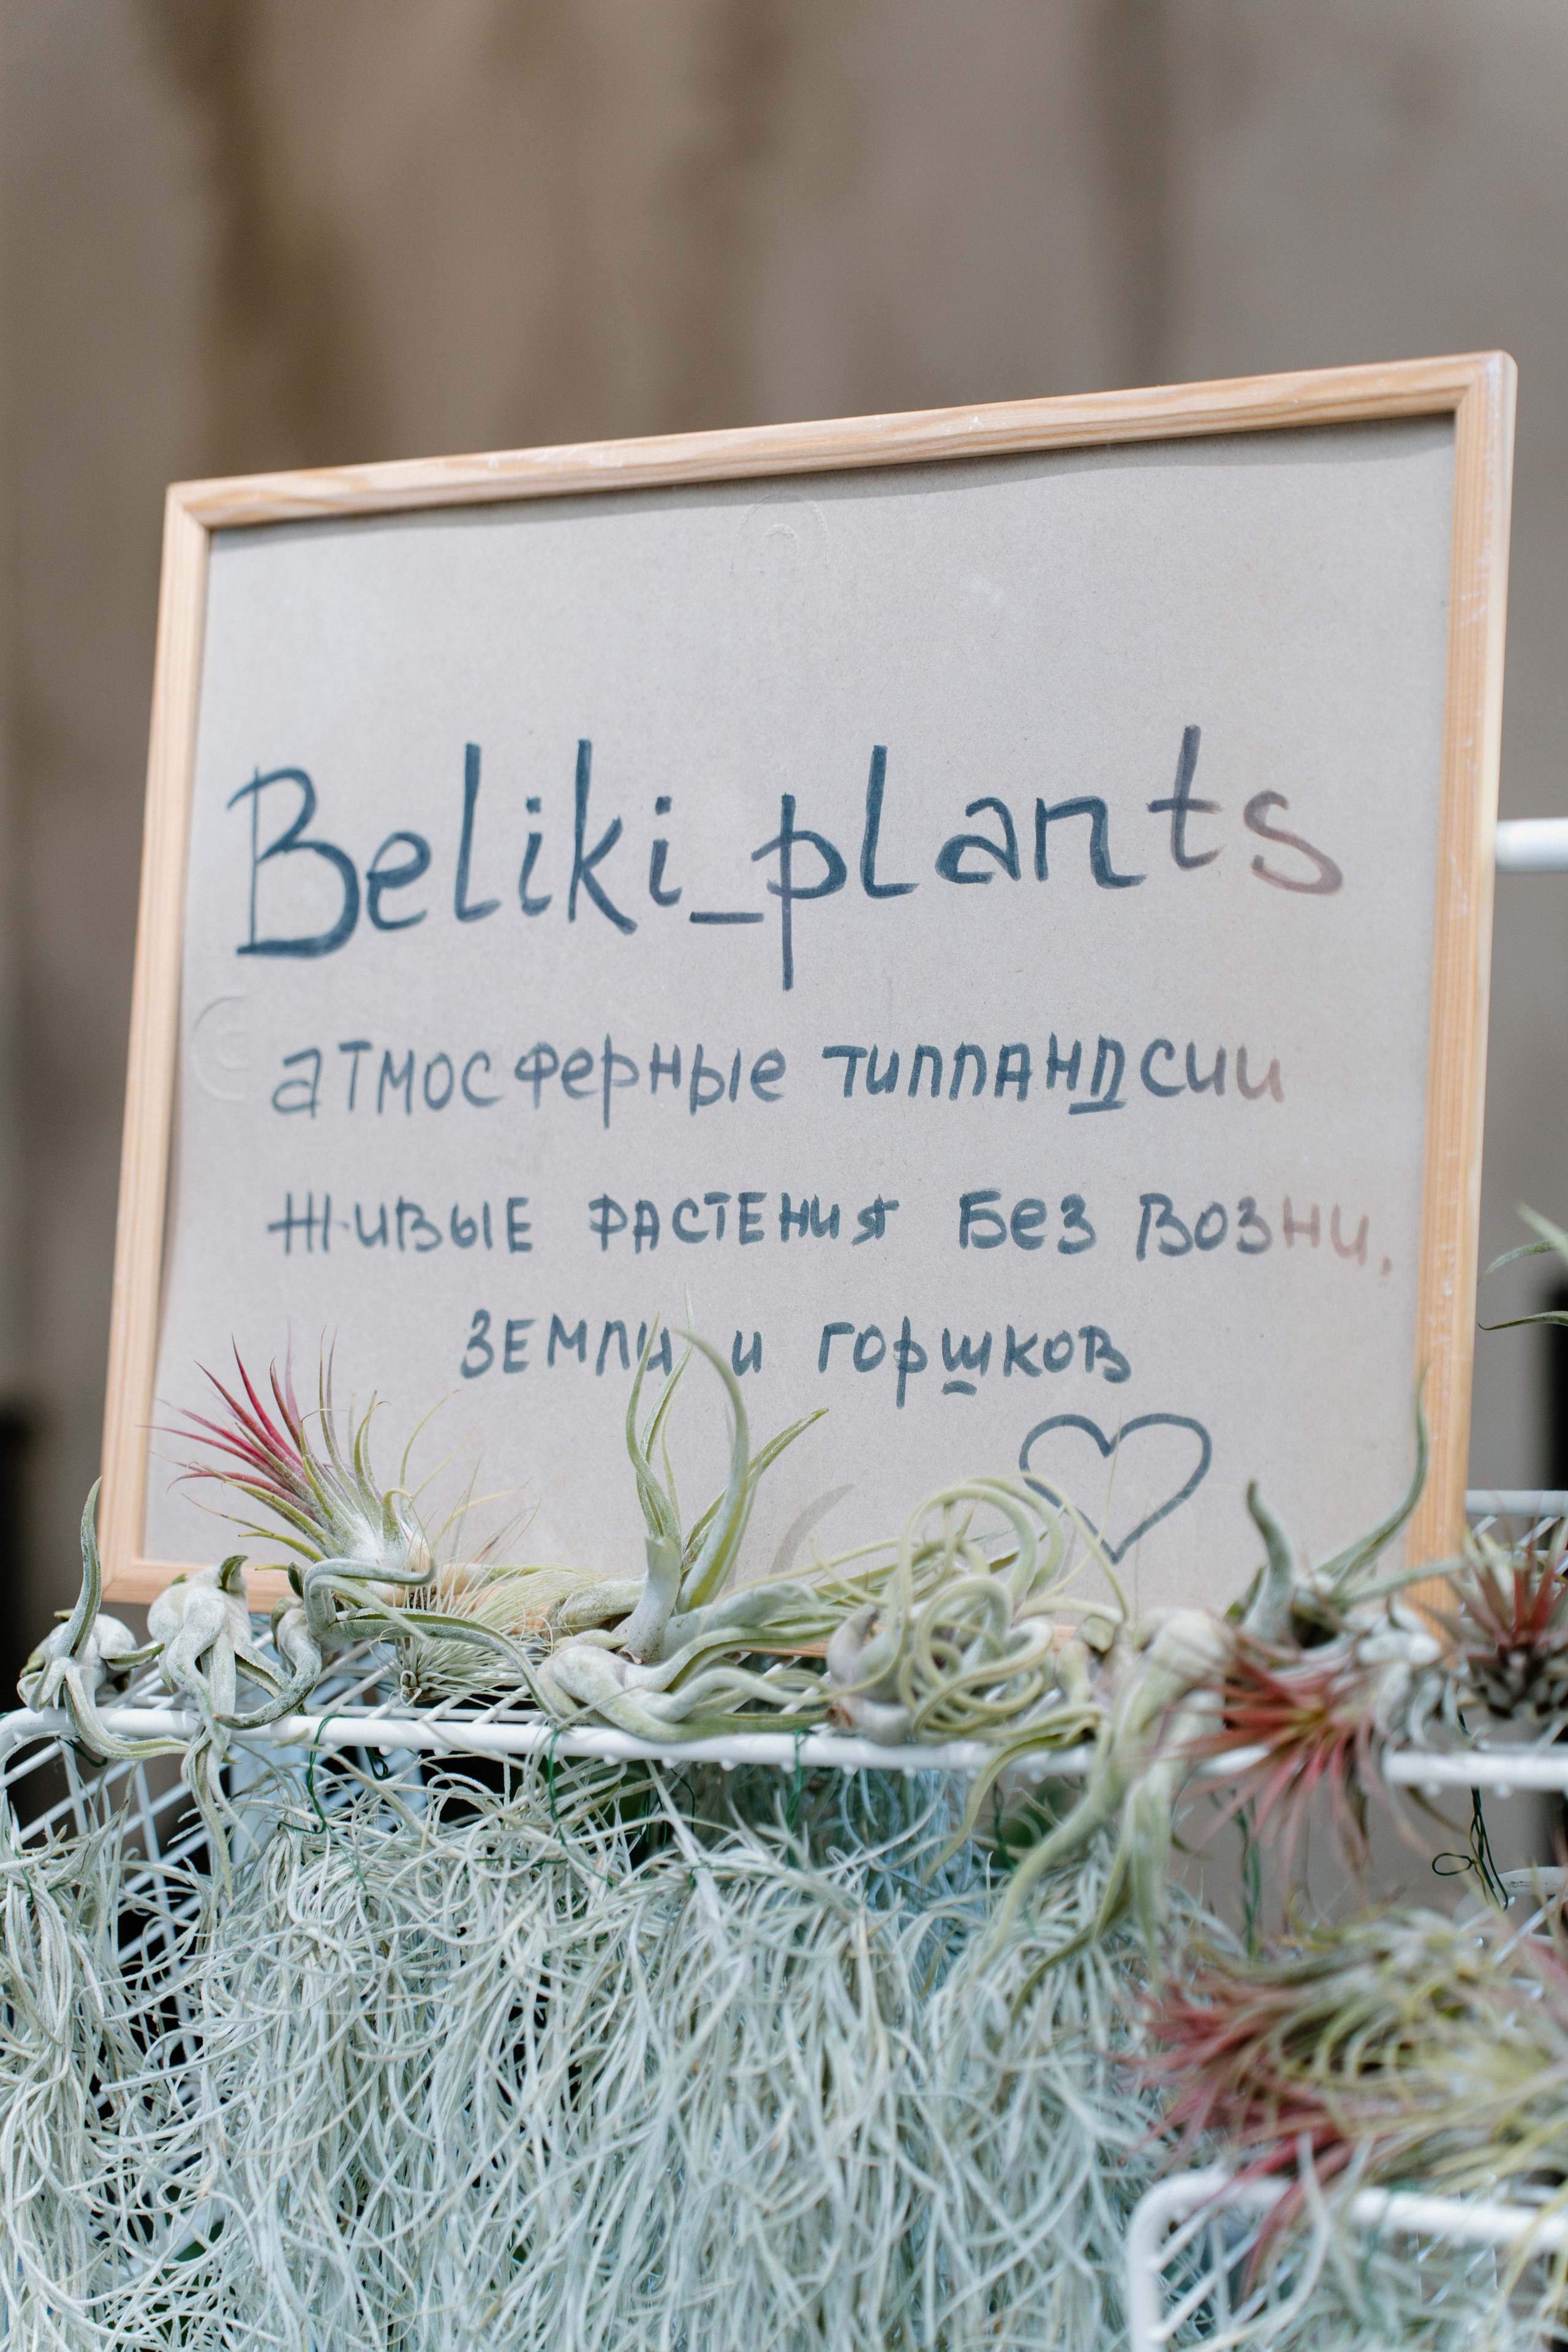 Beliki_plants
атмосферные тилландсии
живые растения без возни,
земли и горшков